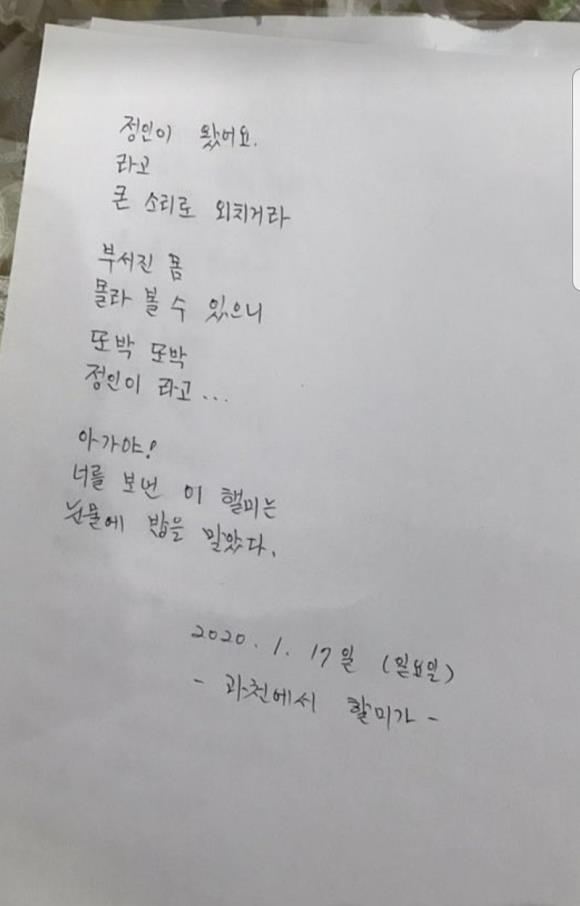 정인이 왔어요.
라고
큰 소리로 외치거라
부서진 몸
몰라 볼 수 있으니
또박 또박
정인이 라고...
아가야!
너를 보낸 이 핼미는
눈물에 밥을 말았다.
2020. 1. 17일 (일요일)
- 과천에서 할미가 -